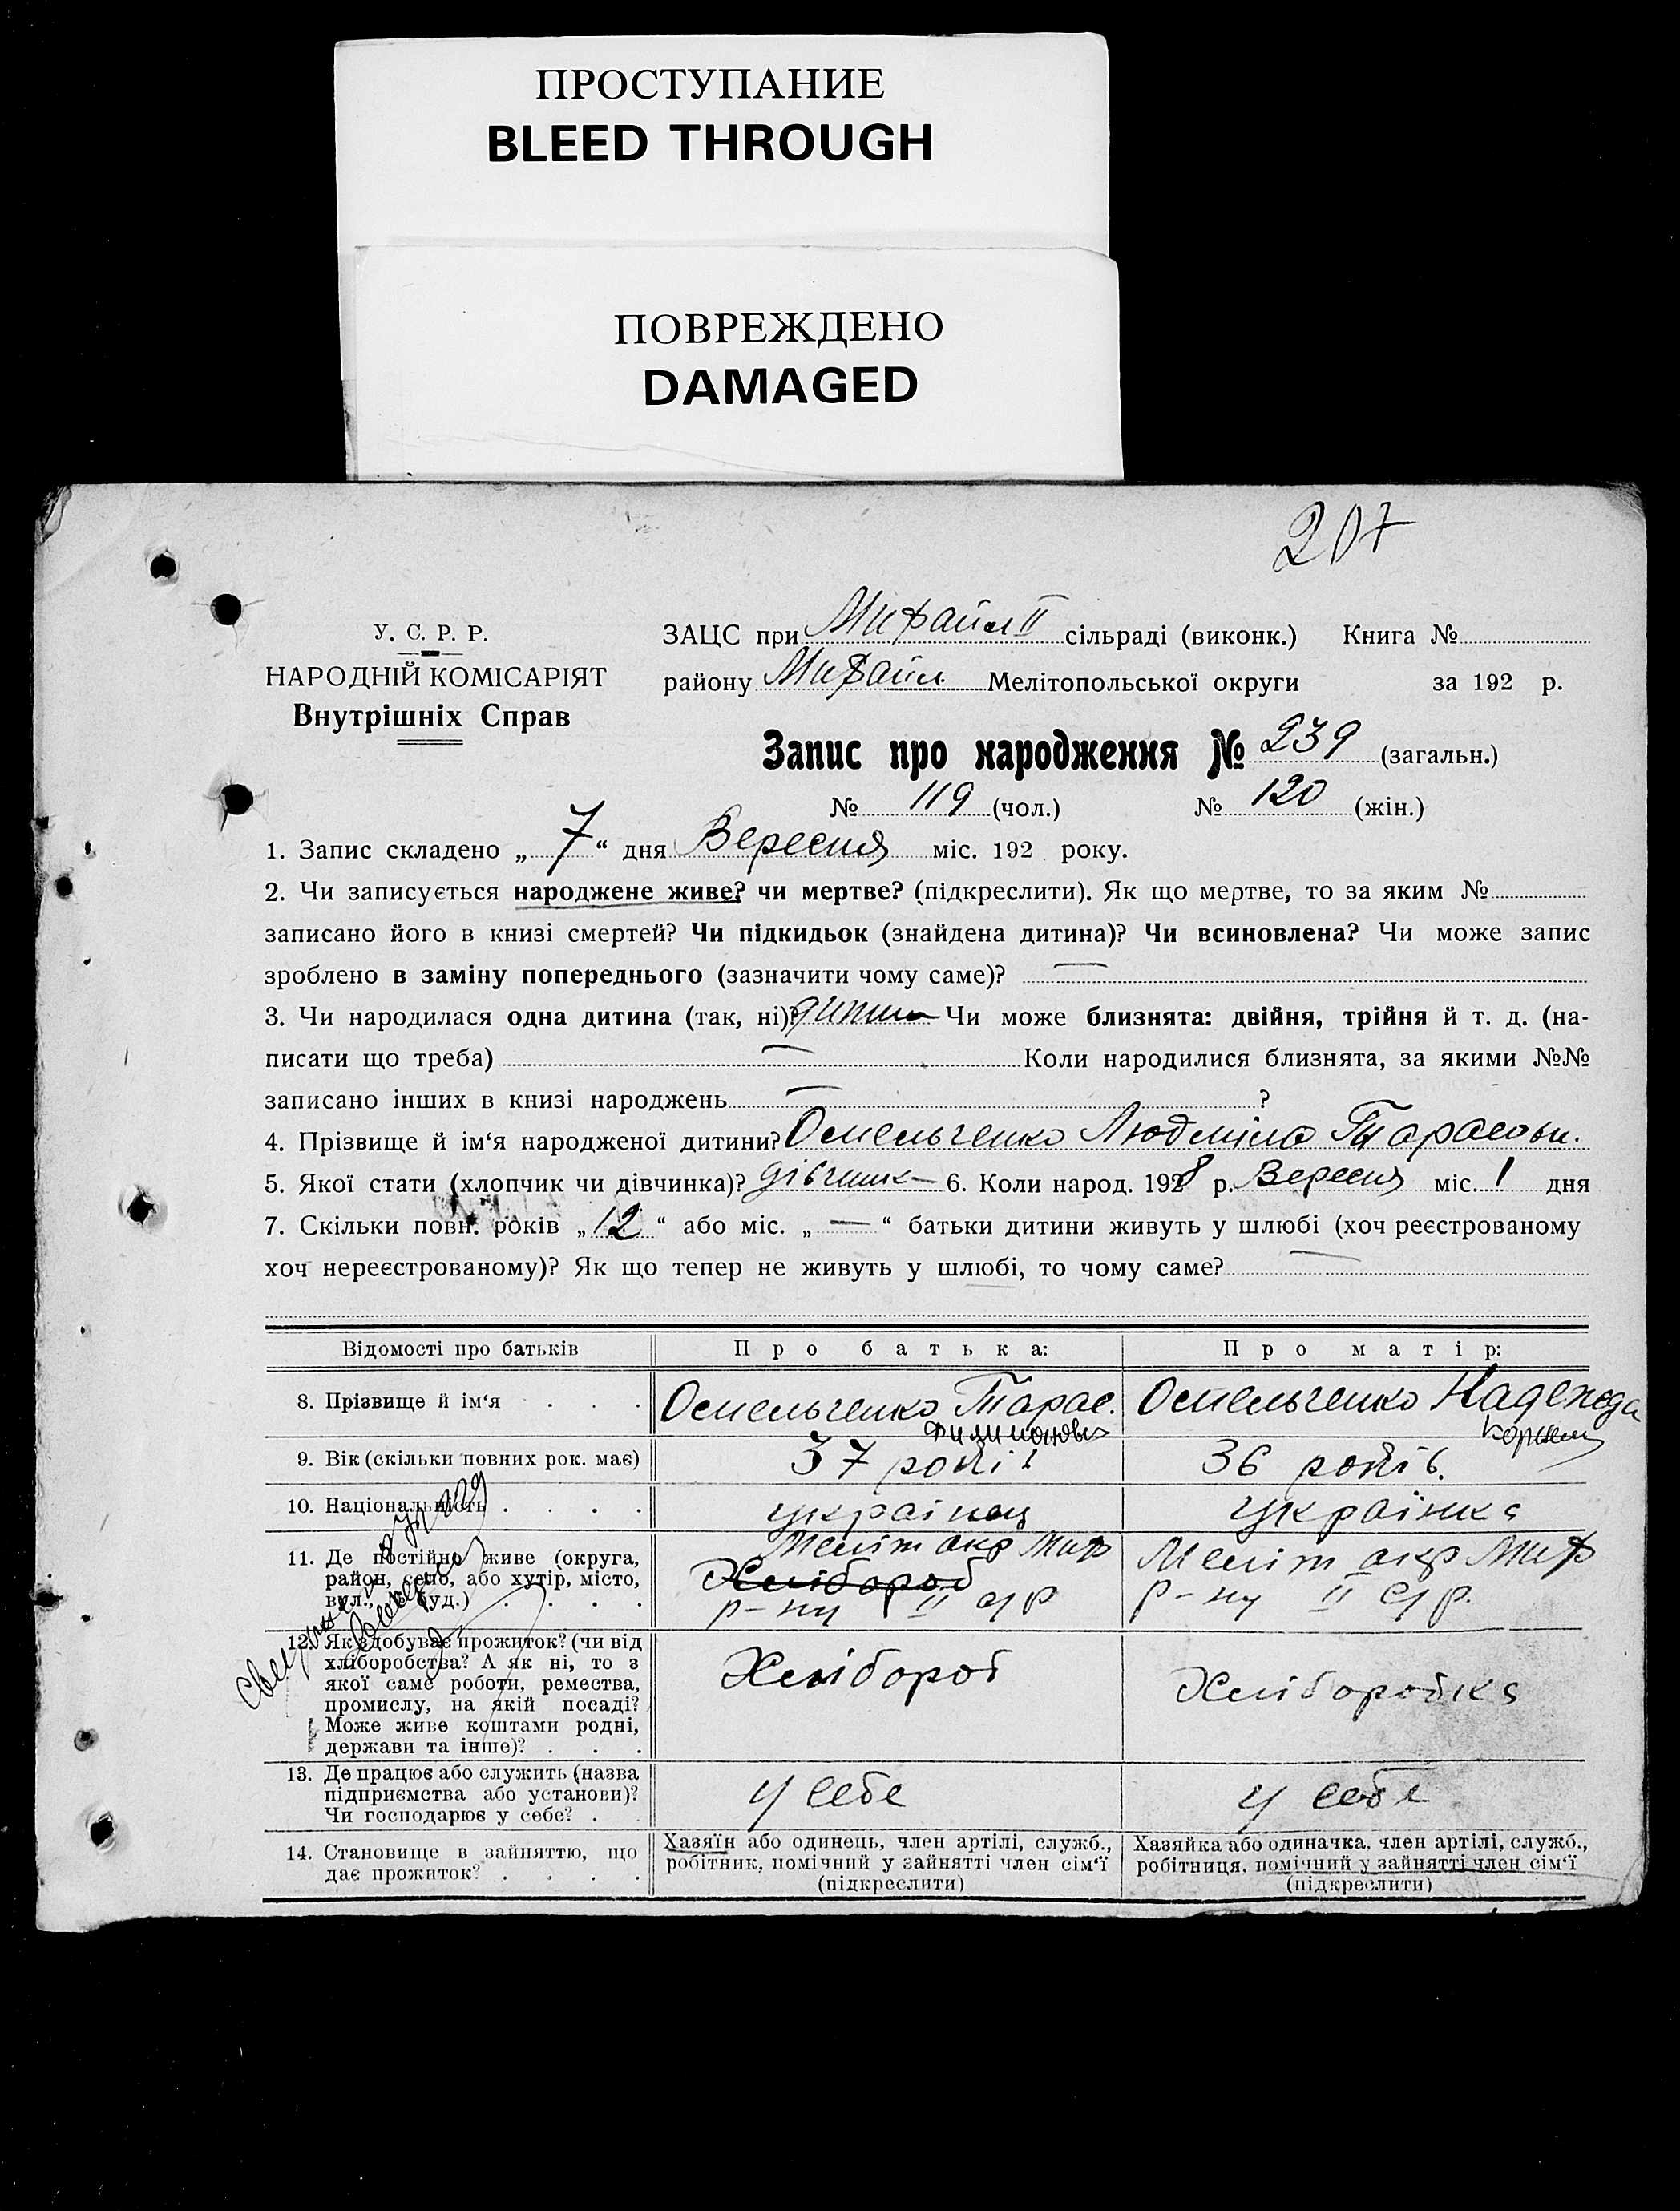 ПРОСТУПАНИЕ
BLEED THROUGH
ПОВРЕЖДЕНО
DAMAGED
207
У. С. Р. Р.
НАРОДНІЙ КОМІСАРІЯТ
Внутрішніх Справ
ЗАЦС при II сільраді (виконк.) Книга №
району Мелітопольської округи за 192 р.
Запис про народження № 239 (загальн.)
№ 119 (чол.) № 120 (жін.)
1. Запис складено „ 7 “ дня Вересня міс. 192 року.
2. Чи записується народжене живе? чи мертве? (підкреслити). Як що мертве, то за яким №
записано його в книзі смертей? Чи підкидьок (знайдена дитина)? Чи всиновлена? Чи може запис
зроблено в заміну попереднього (зазначити чому саме)? —
3. Чи народилася одна дитина (так, ні)? Чи може близнята: двійня, трійня й т. д. (на-
писати що треба) — Коли народилися близнята, за якими №№
записано інших в книзі народжень — ?
4. Прізвище й ім‘я народженої дитини? Омельченко Людміла Тарасовн.
5. Якої стати (хлопчик чи дівчинка)? дівчинка 6. Коли народ. 1928 р. Вересня міс. 1 дня
7. Скільки повн. років „ 12 “ або міс. „ — “ батьки дитини живуть у шлюбі (хоч реєстрованому
хоч нереєстрованому)? Як що тепер не живуть у шлюбі, то чому саме? —
Відомості про батьків Про батька: Про матір:
8. Прізвище й ім‘я . . . Омельченко Тарас. Омельченко Надежда
Филимонович
9. Вік (скільки повних рок. має) 37 років 36 років.
10. Національність . . . . українец українка
11. Де постійно живе (округа, Меліт окр Миф Меліт окр Миф
район, село, або хутір, місто, Хлібороб
вул., буд.) . . . . р-ну II с/р р-ну II с/р.
12. Як здобуває прожиток? (чи від
хліборобства? А як ні, то з Хлібороб Хліборобка
якої саме роботи, ремества,
промислу, на якій посаді?
Може живе коштами родні,
держави та інше)? . . .
13. Де працює або служить (назва
підприємства або установи)? у себе у себе
Чи господарює у себе? .
14. Становище в зайняттю, що Хазяїн або одинець, член артілі, служб., Хазяйка або одиначка, член артілі, служб.,
дає прожиток? . . . . робітник, помічний у зайнятті член сім‘ї робітниця, помічний у зайнятті член сім‘ї
(підкреслити) (підкреслити)